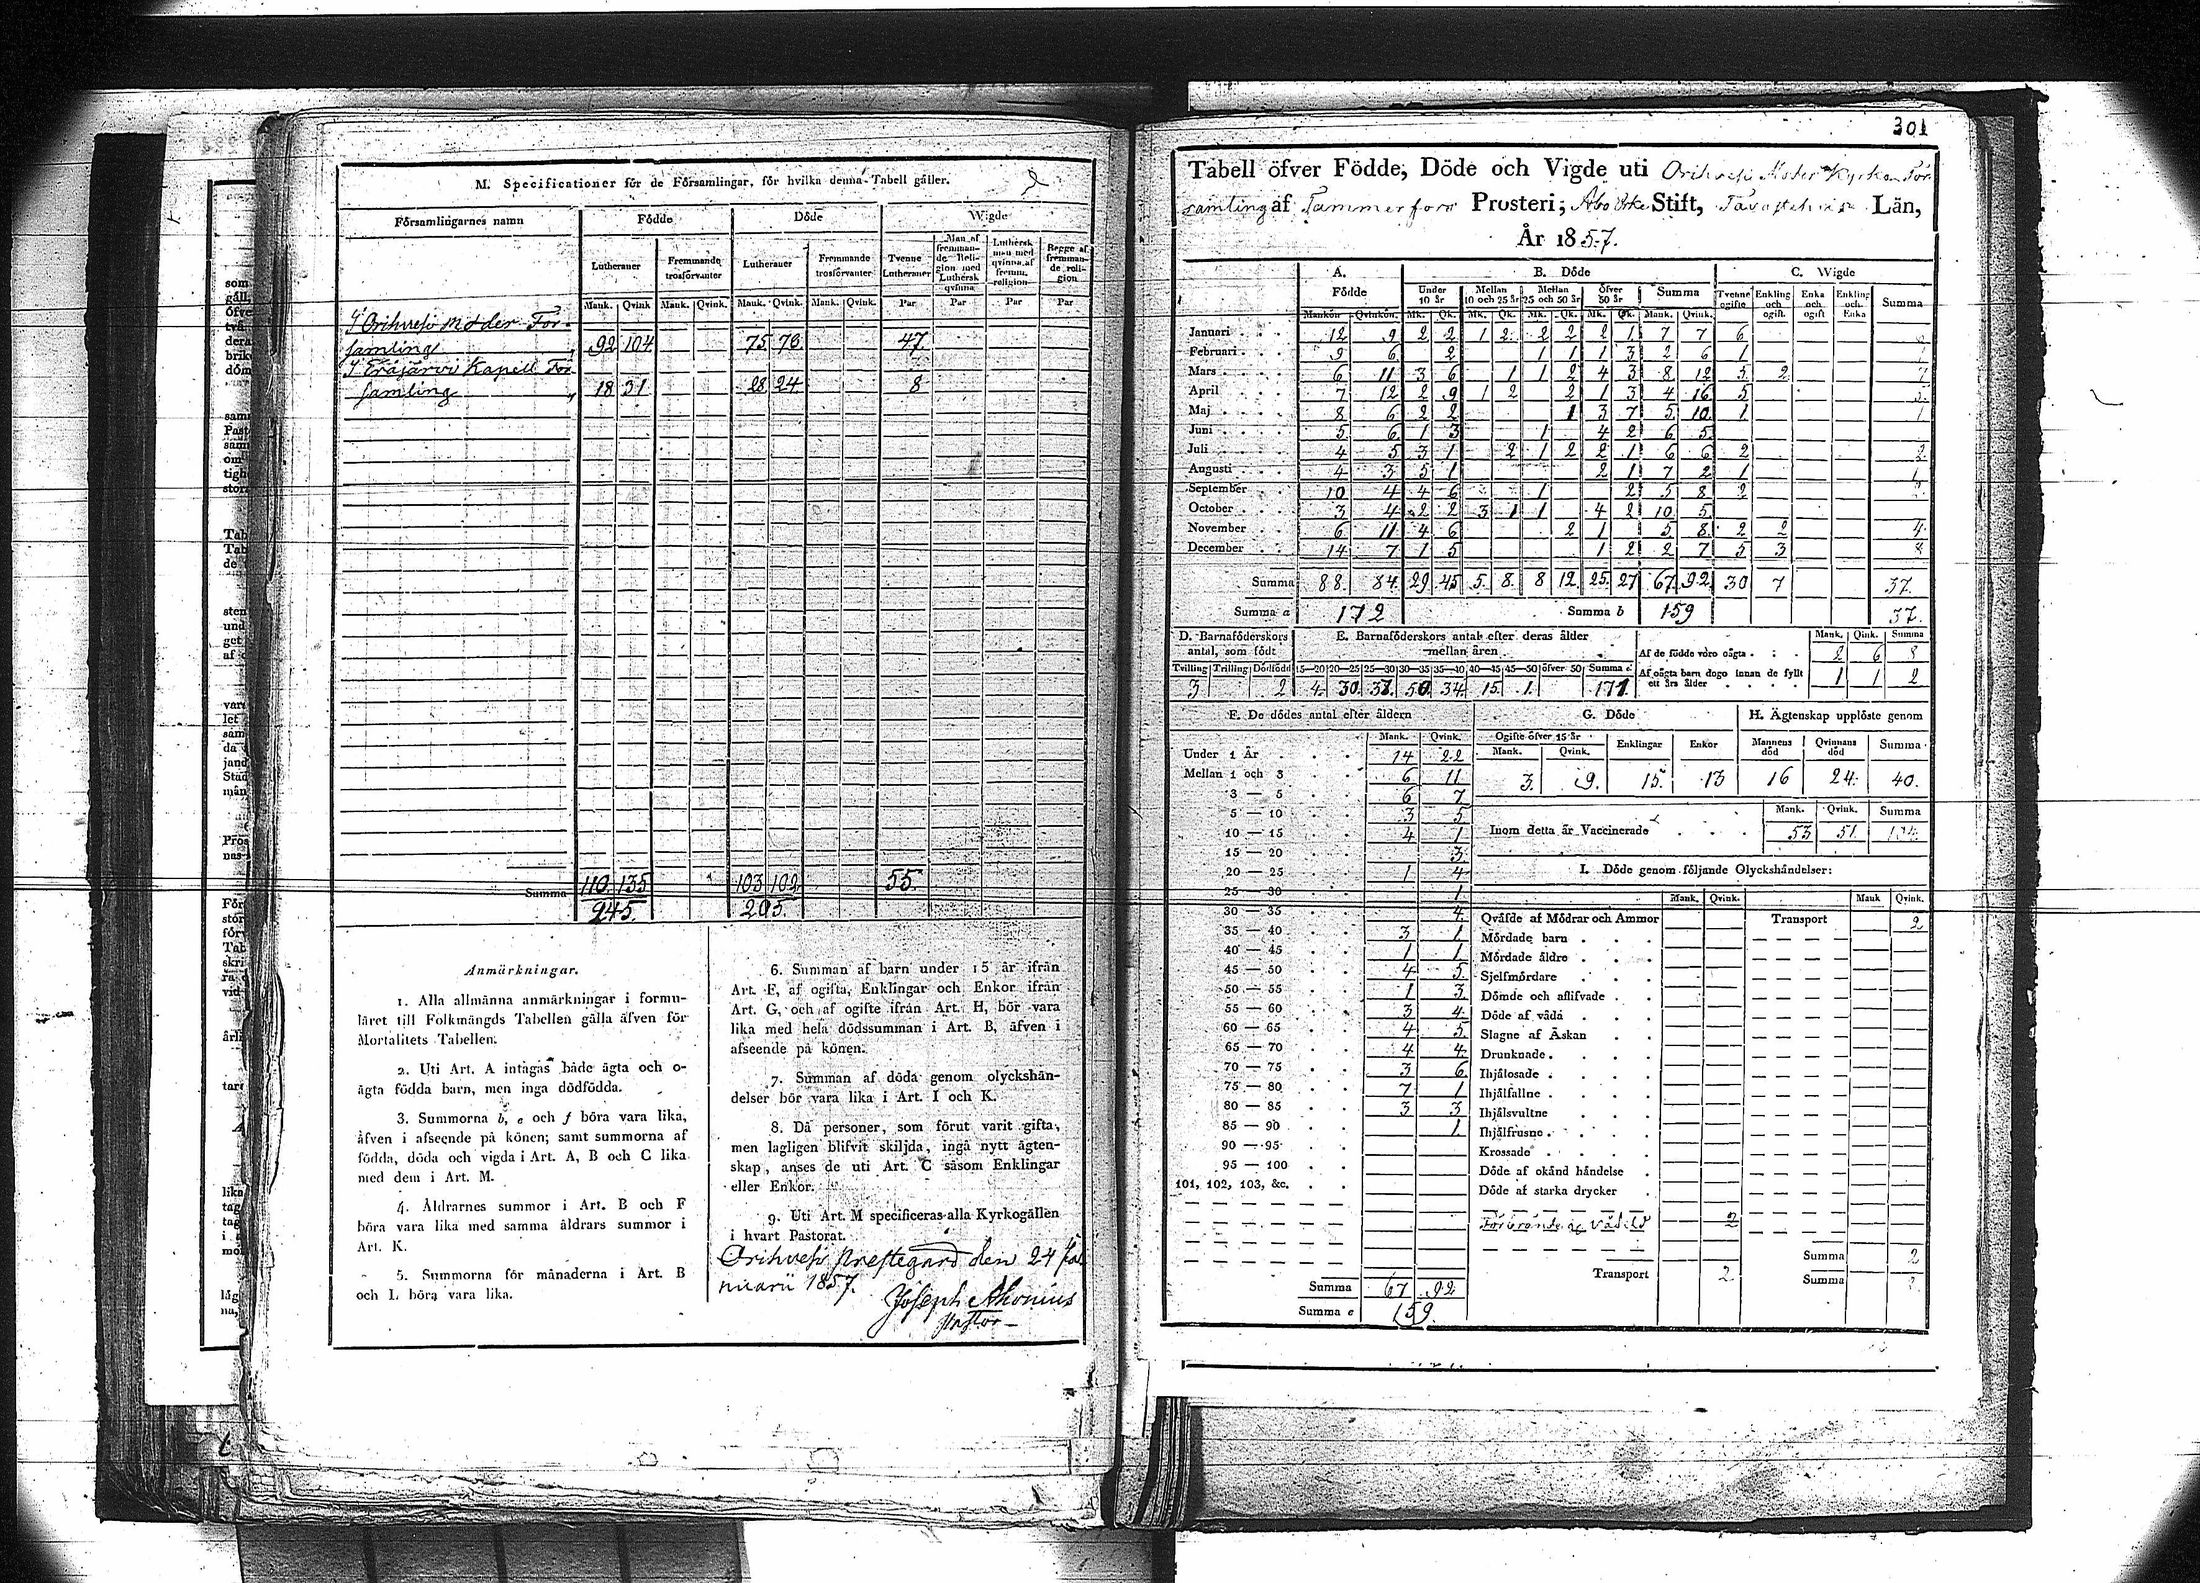 M. Specificationer för de Församlingar, för hvilka denna Tabell gäller.
2
Församlingarnes namn Födde Döde Wigde
Lutheraner Fremmande trosförvanter Lutheraner Fremmande trosförvanter Tvenne Lutheraner Man af fremmande Religion med Luthersk qvinna Luthersk man med qvinna af fremm. religion Begge af fremmande religion
Mank. Qvink Mank. Qvink. Mank. Qvink. Mank. Qvink. Par Par Par Par
I Orihvesi Moder För-
samling 92 104 75 78 47
I Eräjärvi Kapell För
samling 18 31 28 24 8
Summa 110 135 103 102 55.
245. 205.
Anmärkningar.
1. Alla allmänna anmärkningar i formu-
läret till Folkmängds Tabellen gälla äfven för
Mortalitets Tabellen.
2. Uti Art. A intagas både ägta och o-
ägta födda barn, men inga dödfödda.
3. Summorna b, e och f böra vara lika,
äfven i afseende på könen; samt summorna af
födda, döda och vigda i Art. A, B och C lika
med dem i Art. M.
4. Åldrarnes summor i Art. B och F
böra vara lika med samma åldrars summor i
Art. K.
5. Summorna för månaderna i Art. B
och L böra vara lika.
6. Summan af barn under 15 år ifrån
Art. F, af ogifta, Enklingar och Enkor ifrån
Art. G, och af ogifte ifrån Art. H, bör vara
lika med hela dödssumman i Art. B, äfven i
afseende på könen.
7. Summan af döda genom olyckshän-
delser bör vara lika i Art. I och K.
8. Då personer, som förut varit gifta,
men lagligen blifvit skiljda, ingå nytt ägten-
skap, anses de uti Art. C såsom Enklingar
eller Enkor.
9. Uti Art. M specificeras alla Kyrkogällen
i hvart Pastorat.
Orihvesi Prestegård den 24 Ja
nuarii 1857.
Joseph
Pastor
301
Tabell öfver Födde, Döde och Vigde uti Orihvesi Moder Kyrko För
samling af Tammerfors Prosteri, Åbo Erke Stift, Tavastehus Län,
År 1857.
A. Födde B. Döde C. Wigde
Under 10 år Mellan 10 och 25 år Mellan 25 och 50 år Öfver 50 år Summa Tvenne ogifte Enkling och ogift. Enka och ogift Enkling och Enka Summa
Mankön Qvinkön. Mk. Qk. Mk. Qk. Mk. Qk. Mk. Qk. Mank. Qvink.
Januari 12 9 2 2 1 2 2 2 2 1 7 7 6
Februari 9 6 2 1 1 1 3 2 6 1
Mars 6 11 3 6 1 1 2 4 3 8 12 5 2 7
April 7 12 2 9 1 2 2 1 3 4 16 5
Maj 8 6 2 2 1 3 7 5 10 1 1
Juni 5 6 1 3 1 4 2 6 5
Juli 4 5 3 1 2 1 2 2 1 6 6 2 2
Augusti 4 3 5 1 2 1 7 2 1 1
September 10 4 4 6 1 2 5 8 2
October 3 4 2 2 3 1 1 4 2 10 5
November 6 11 4 6 2 1 5 8 2 2 4
December 14 7 1 5 1 2 2 7 5 3 8
Summa 88 84 29 45 5 8 8 12 25 27 67 92 30 7 37.
Summa a 172 Summa b 159 37.
D. Barnaföderskors antal, som födt E. Barnaföderskors antal efter deras ålder mellan åren
Tvilling Trilling Dödfödd 15—20 20—25 25—30 30—35 35—40 40—45 45—50 öfver 50 Summa e
3 2 4 30 37 50 34 15 1 171
Mank. Qink. Summa
Af de födde voro oägta 2 6 8
Af oägta barn dogo innan de fyllt
ett års ålder 1 1 2
F. De dödes antal efter åldern
Mank. Qvink.
Under 1 År 14 22
Mellan 1 och 3 6 11
3 — 5 6 7
5 — 10 3 5
10 — 15 4 1
15 — 20 3
20 — 25 1 4
25 — 30 1
30 — 35 4
35 — 40 3 1
40 — 45 1 1
45 — 50 4 5
50 — 55 1 3
55 — 60 3 4
60 — 65 4 5
65 — 70 4 4
70 — 75 3 6
75 — 80 7 1
80 — 85 3 3
85 — 90 1
90 — 95
95 — 100
101, 102, 103, &c.
Summa 67 92
Summa e 159.
G. Döde H. Ägtenskap upplöste genom
Ogifte öfver 15 år Enklingar Enkor Mannens död Qvinnans död Summa
Mank. Qvink.
3. 9. 15. 13 16 24 40.
Mank. Qvink. Summa
Inom detta år Vaccinerade 53 51 104
I. Döde genom följande Olyckshändelser:
Mank. Qvink. Mank Qvink.
Qväfde af Mödrar och Ammor Transport 2
Mördade barn
Mördade äldre
Sjelfmördare
Dömde och aflifvade
Döde af våda
Slagne af Åskan
Drunknade
Ihjälosade
Ihjälfallne
Ihjälsvultne
Ihjälfrusne
Krossade
Döde af okänd händelse
Döde af starka drycker
Förbrände af vådeld 2
Summa 2
Transport 2 Summa 2